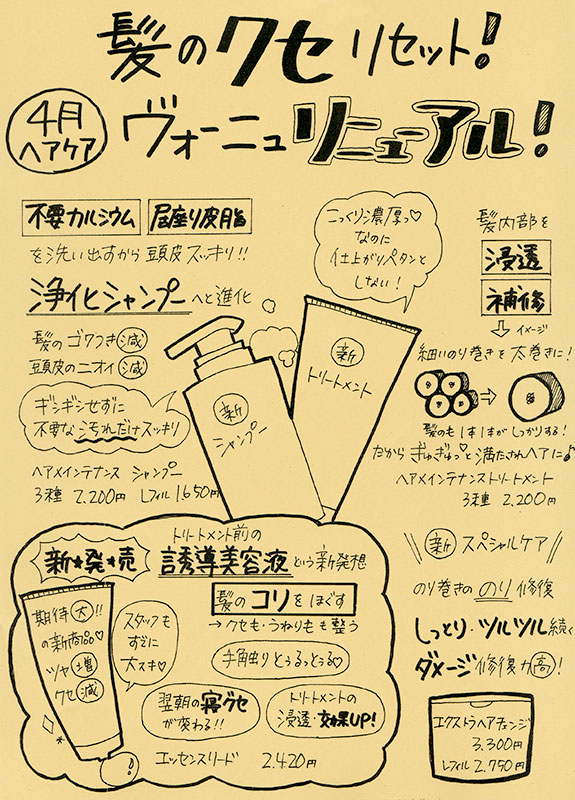 髪のクセリセット!
4月
ヘアケア
ヴォーニュリニューアル!
不要カルシウム 居座り皮脂
を洗い出すから頭皮スッキリ!!
浄化シャンプーへと進化
髪のゴワつき減
頭皮のニオイ減
ギシギシせずに
不要な汚れだけスッキリ
ヘアメインテナンス シャンプー
3種 2.200円 レフィル1650円
新
シャンプー
こっくり濃厚っ♡
なのに
仕上がりペタンと
しない!
新
トリートメント
髪内部を
浸透
補修
イメージ
細いのり巻きを太巻きに!
髪の毛1本1本がしっかりする!
だからぎゅぎゅっ♡と満たされヘアに♪
ヘアメインテナンストリートメント
3種 2,200円
新★発★売
トリートメント前の
誘導美容液という新発想
髪のコリをほぐす
→クセも・うねりも整う
手触りとぅるっとぅる♡
期待大!!
の新商品♡
ツヤ増
クセ減
スタッフも
すでに
大スキ♡
翌朝の寝グセ
が変わる!!
トリートメントの
浸透・効果UP!
エッセンスリード 2.420円
新 スペシャルケア
のり巻きののり修復
しっとり・ツルツル続く
ダメージ修復力高!
エクストラヘアチェンジ
3.300円
レフィル2.750円